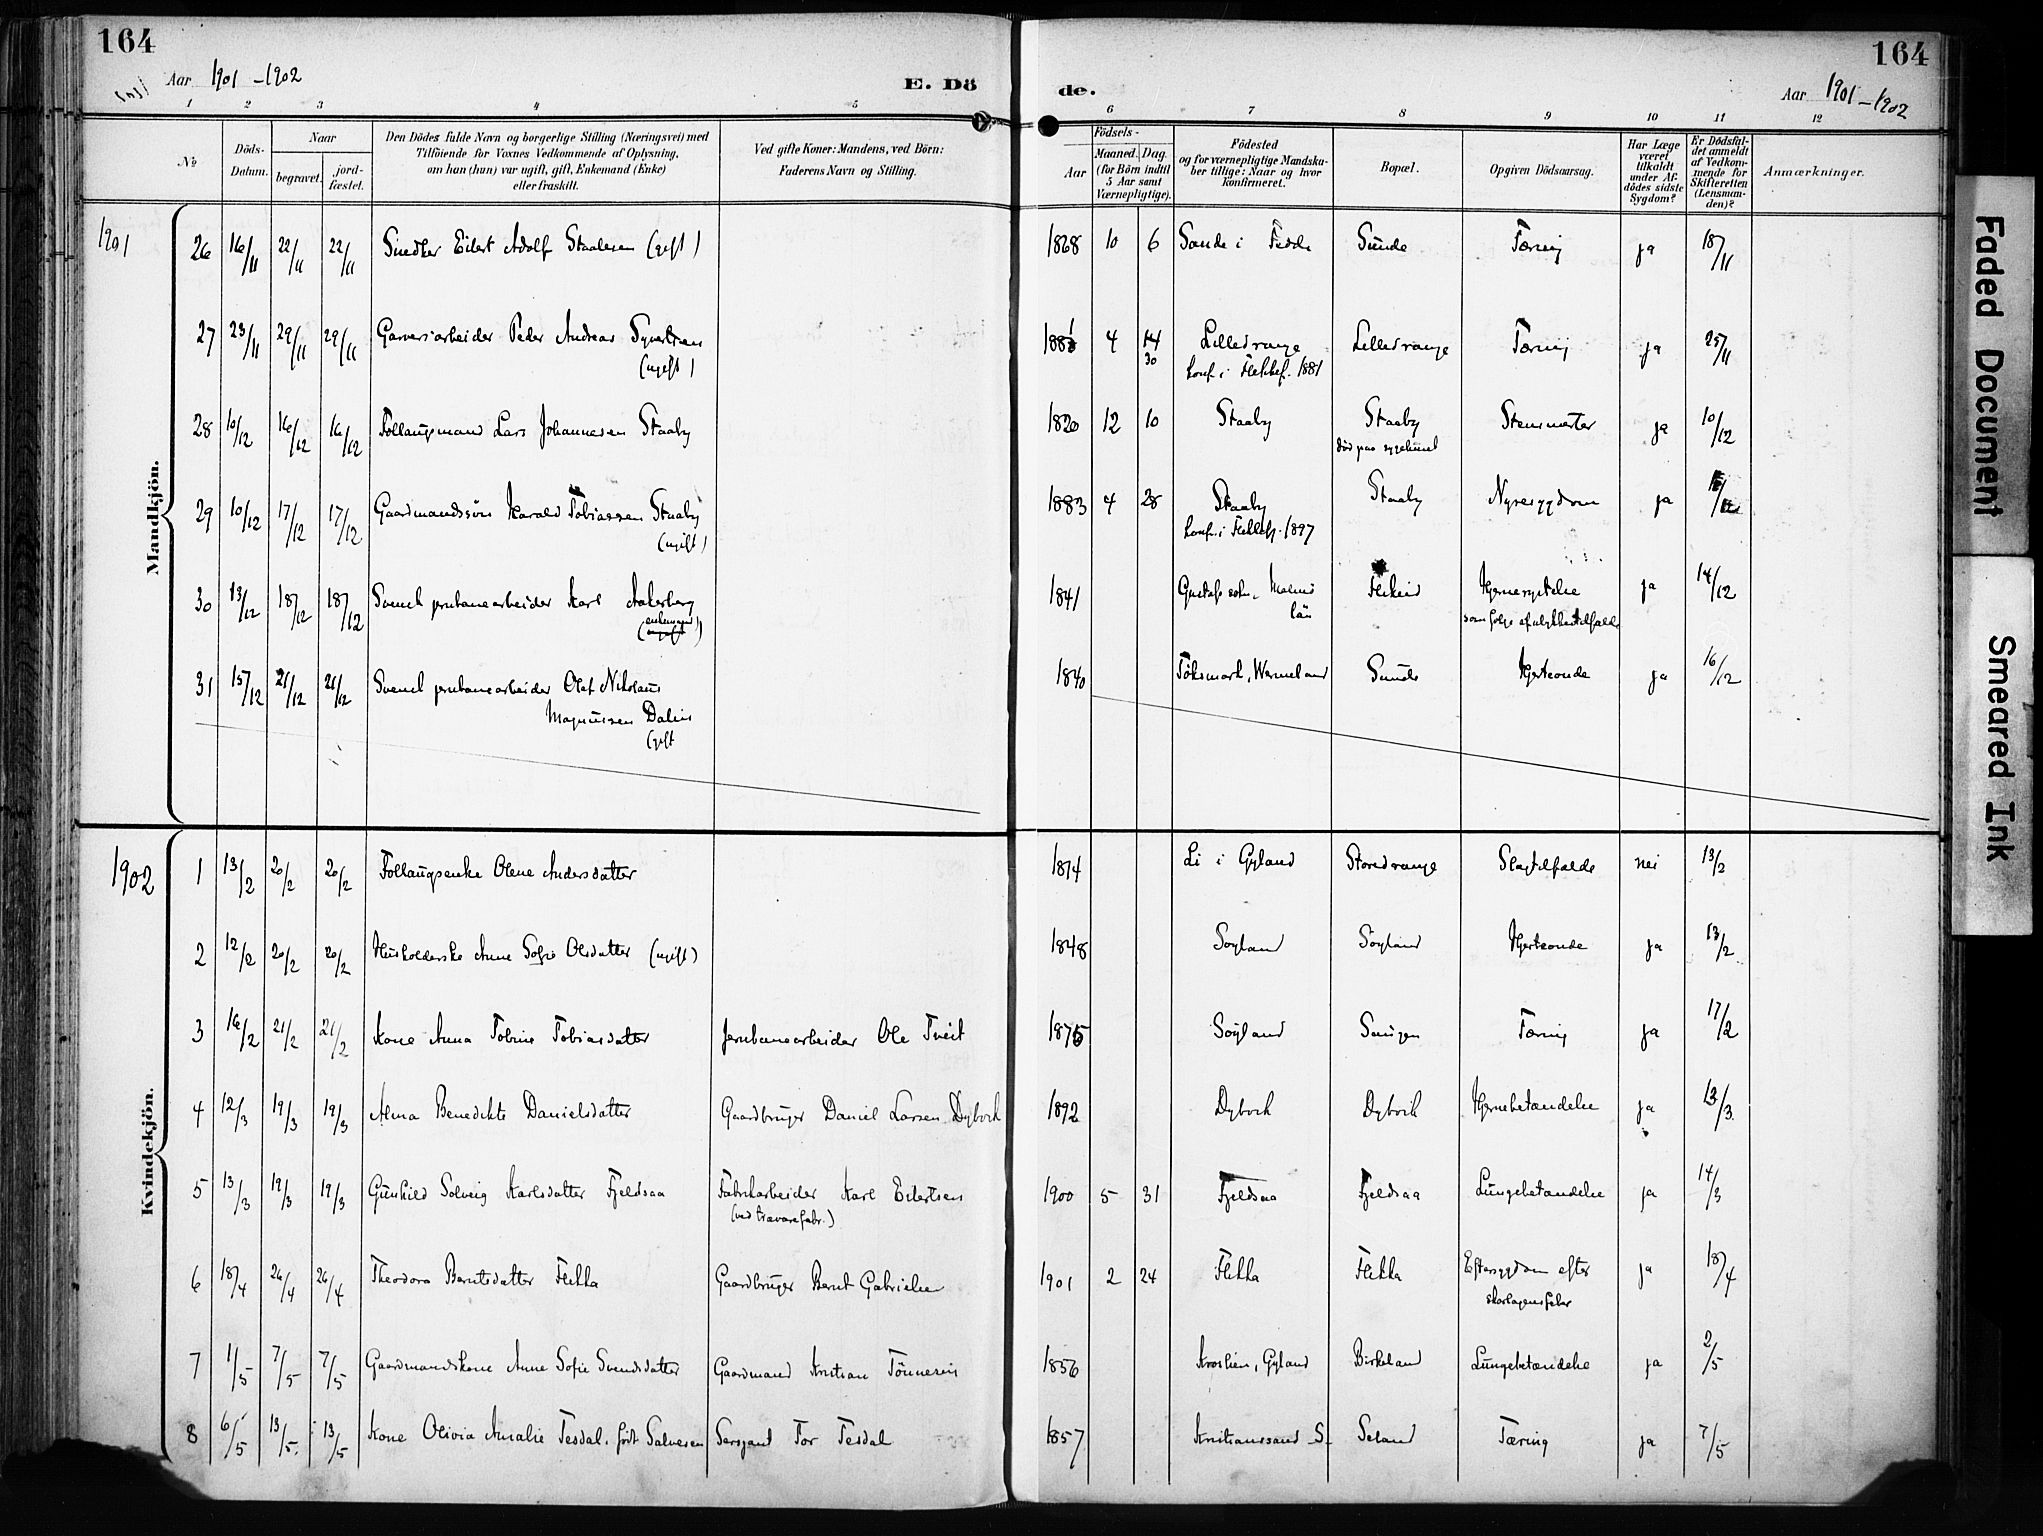 164
164
Aar 1901-1902
E. Dö
de.
Aar 1901-1902
1 2 3 4 5 6 7 8 9 10 11 12
No
Döds-Datum.
Naar
begravet.
jord-fæstet.
Den Dödes fulde Navn og borgerlige Stilling (Næringsvei) med
Tilföiende for Voxnes Vedkommende af Oplysning,
om han (hun) var ugift, gift, Enkemand (Enke)
eller fraskilt.
Ved gifte Koner: Mandens, ved Börn:
Faderens Navn og Stilling.
Födsels-
Aar
Maaned. Dag.
(for Börn indtil
5 Aar samt
Værnepligtige).
Födested
og for værnepligtige Mandsku-
ber tillige: Naar og hvor
konfirmeret.
Bopæl.
Opgiven Dödsaarsag.
Har Læge
været
tilkaldt
under Af-
dödes sidste
Sygdom?
Er Dödsfal-
det anmeldt
af Vedkom-
mende for
Skifteretten
(Lensman-
den)?
Anmærkninger.
1901
Mandkjön.
26 16/11 22/11 22/11 Snedker Eilert Adolf Staalesen (gift) 1868 10 6 Sande i Fedde Sunde Tæring ja 18/11
27 23/11 29/11 29/11 Garveriarbeider Peder Andreas Syvertsen 1881 4 14 Lilledrange Lilledrange Tæring ja 25/11
(ugift) 30 konf. i Flekkef. 1881
28 10/12 16/12 16/12 Follaugsmand Lars Johannesen Staaby 1820 12 10 Staaby Staaby Stensmerter ja 10/12
död paa sygehuset
29 10/12 17/12 17/12 Gaardmandssön Harald Tobiassen Staaby 1883 4 28 Staaby Staaby Nyresygdom ja
(ugift) konf. i Flekkefj. 1897
30 13/12 18/12 18/12 Svensk jernbanearbeider Karl Aakerberg 1841 Malmö Flikeid Hjernerystelse ja 14/12
(enkemand) län som følge af ulykkestilfælde
31 15/12 21/12 21/12 Svensk jernbanearbeider Olof Nikolaus 1840 Töksmark, Wermeland Sunde Hjerteonde ja 16/12
Magnussen Dalin
(gift
1902
Kvindekjön.
1 13/2 20/2 20/2 Follaugsenke Olene Andersdatter 1814 Li i Gyland Storedrange Slagtilfælde nei 13/2
2 12/2 20/2 20/2 Husholderske Anne Sofie Olsdatter (ugift) 1848 Söyland Söyland Hjerteonde ja 13/2
3 16/2 21/2 21/2 Kone Anna Tobine Tobiasdatter Jernbanearbeider Ole Tveit 1875 Söyland Tæring ja 17/2
4 12/3 19/3 19/3 Alma Benedikte Danielsdatter Gaardbruger Daniel Larsen Dybvik 1892 Dybvik Dybvik Hjernebetændelse ja 13/3
5 13/3 19/3 19/3 Gunhild Solveig Karlsdatter Fjeldsaa Fabrikarbeider Karl Eilertsen 1900 5 31 Fjeldsaa Fjeldsaa Lungebetændelse ja 14/3
(ved trævarefabr.)
6 18/4 26/4 26/4 Theodora Berntsdatter Flikka Gaardbruger Bernt Gabrielsen 1901 2 24 Flikka Flikka Eftersygdom efter ja 18/4
skarlagensfeber
7 1/5 7/5 7/5 Gaardmandskone Anne Sofie Svendsdatter Gaardmand Kristian Tönnesen 1856 Kvoslien, Gyland Birkeland Lungebetændelse ja 2/5
8 6/5 13/5 13/5 Kone Olivia Amalie Tesdal, född Salvesen Sersjant Tor Tesdal 1857 Kristianssand S. Seland Tæring ja 7/5
Faded Document
Smeared Ink